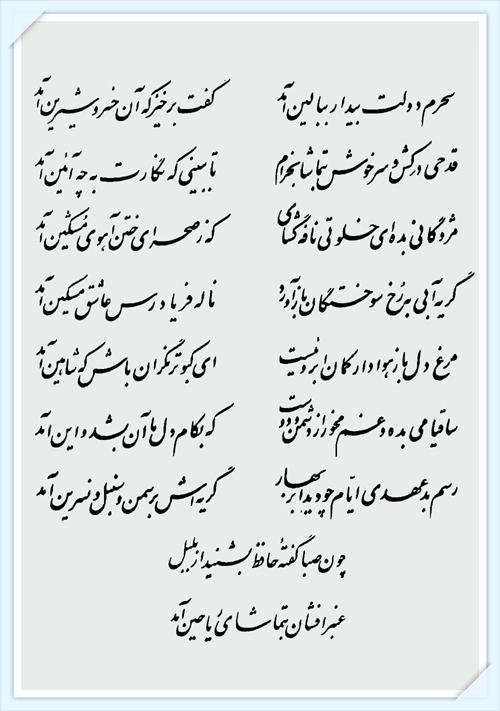 سحرم دولت بیدار ببالین آمد گفت برخیز که آن خسرو شیرین آمد
قدحی درکش و سرخوش بتماشا بخرام تا ببینی که نگارت به چه آئین آمد
مژدگانی بده ای خلوتی نافه گشای که ز صحرای ختن آهوی مشکین آمد
گریه آبی به رخ سوختگان باز آورد ناله فریاد رس عاشق مسکین آمد
مرغ دل باز هوادار کمان ابروئیست ای کبوتر نگران باش که شاهین آمد
ساقیا می بده و غم مخور از دشمن و دوست که بکام دل ما آن بشد و این آمد
رسم بدعهدی ایّام چو دید ابر بهار گریه اش بر سمن و سنبل و نسرین آمد
چون صبا گفتهٔ حافظ بشنید از بلبل
عنبر افشان بتماشای ریاحین آمد